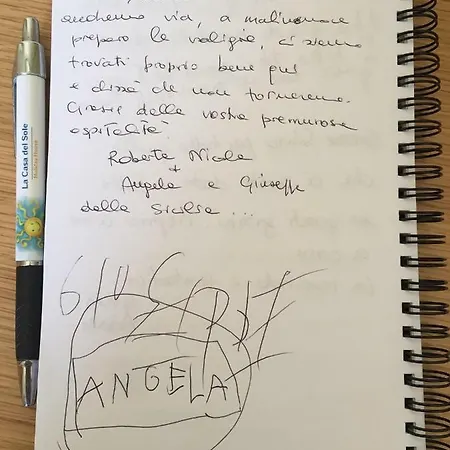 andiamo via, a malincuore
preparo le valigie, ci siamo
trovati proprio bene qui
e chissà che non torneremo.
Grazie della vostra premurosa
ospitalità.
Roberta Nicola
+
Angela e Giuseppe
dalla Sicilia ...
ANGELA
La Casa del Sole
Holiday House